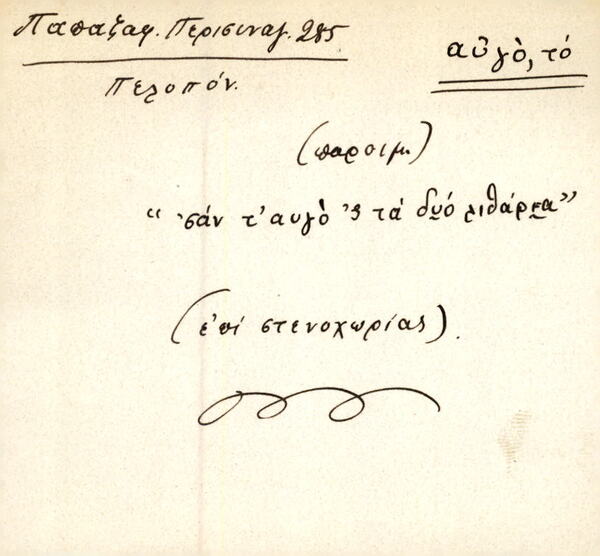 Παπαζαφ. Περισυναγ. 285
Πελοπόν.
αὐγὸ, τό
(παροιμ.)
"σάν τ' αυγὸ 'ς τά δυ̯ό λιθάρε̯α"
(ἐπί στενοχωρίας).